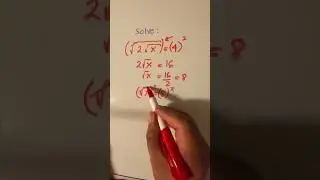 Solve:
(√(2√x))² = (4)²
2√x = 16
√x = 16/2 = 8